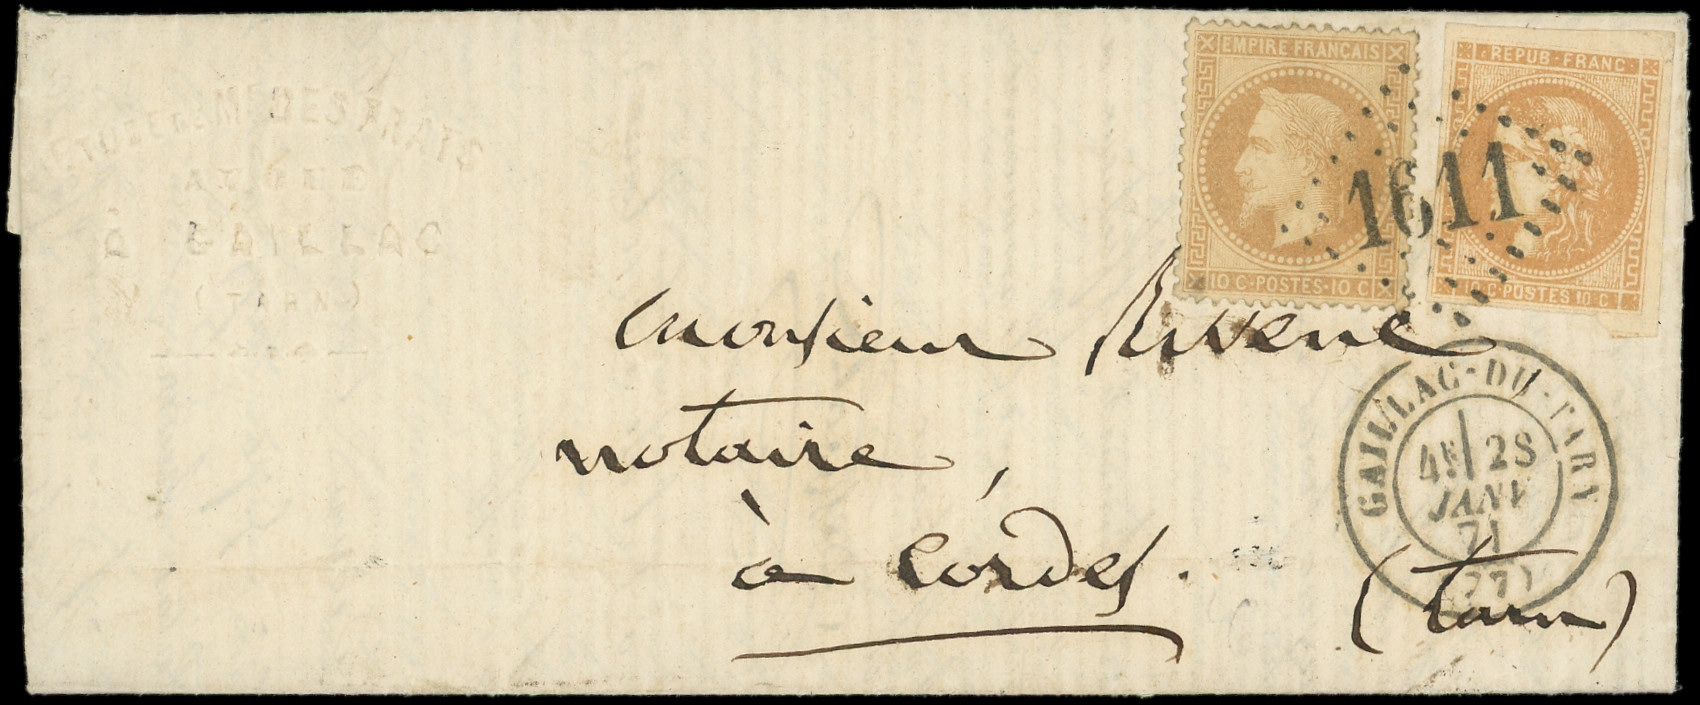 ETUDE DE Me DESPRATS
À GAILLAC
(TARN)
EMPIRE FRANÇAIS
10 C·POSTES·10 C
REPUB·FRANC·
10 C·POSTES 10 C
1611
Monsieur
notaire,
à Cordes.
(Tarn)
GAILLAC-DU-TARN
4E 28
JANV
71
(77)